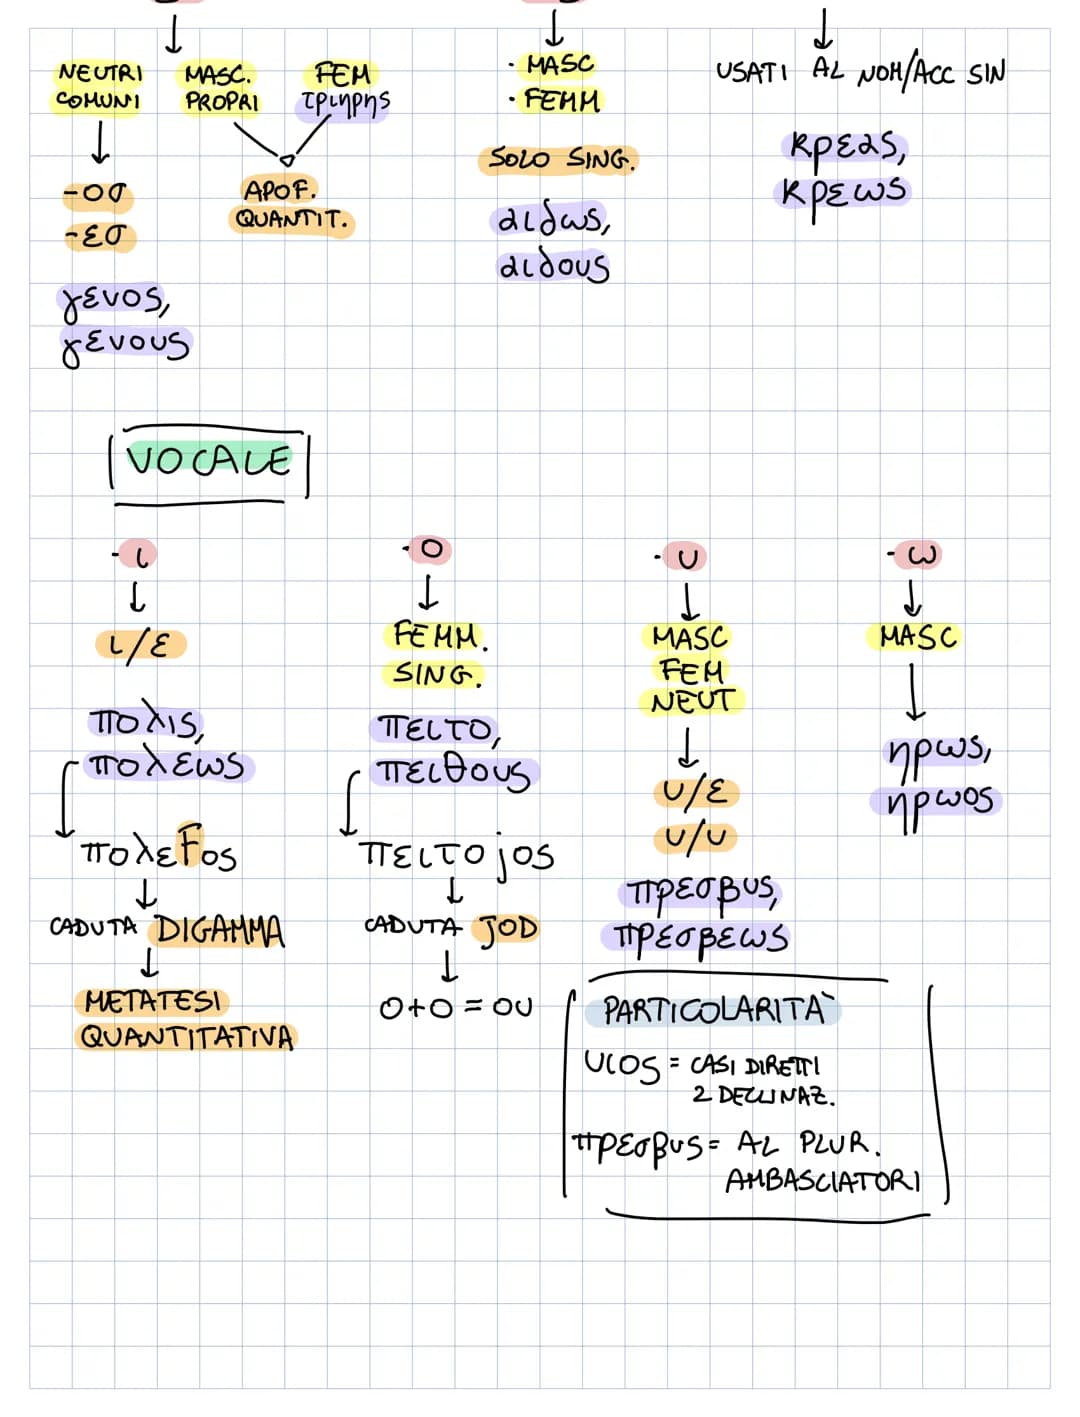 NEUTRI
COMUNI
-οσ
-εσ
γενος,
γενους
MASC.
PROPRI
FEM
τριηρης
APOF.
QUANTIT.
· MASC
· FEMM
SOLO SING.
αιδως,
αιδους
USATI AL NOM/ACC SIN
κρεας,
κρεως
VOCALE
- ι
ι/ε
πολις,
πολεως
πολεϝος
CADUTA DIGAMMA
METATESI
QUANTITATIVA
· ο
FEMM.
SING.
πειτο,
πειθους
πειτο jος
CADUTA JOD
ο+ο = ου
· υ
MASC
FEM
NEUT
υ/ε
υ/υ
πρεσβυς,
πρεσβεως
PARTICOLARITÀ
υιος = CASI DIRETTI
2 DECLINAZ.
πρεσβυς = AL PLUR.
AMBASCIATORI
- ω
MASC
ηρως,
ηρωος